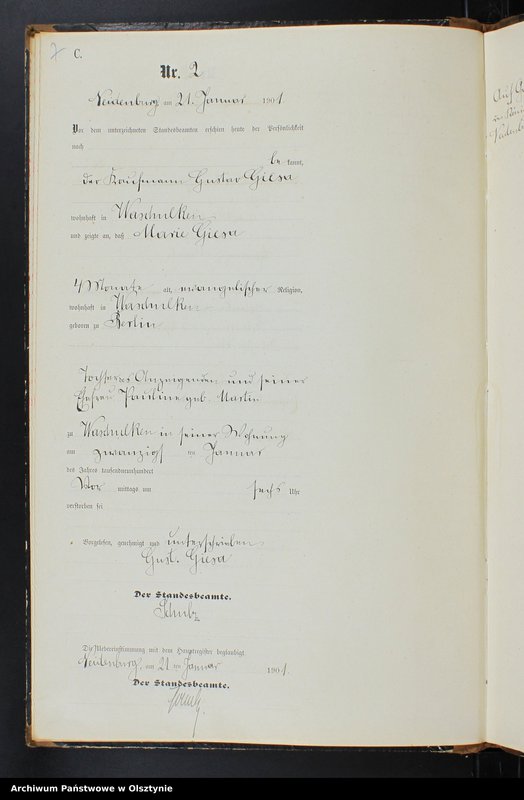 C.
Nr. 2
Neidenburg am 21. Januar 1901
Vor dem unterzeichneten Standesbeamten erschien heute der Persönlichkeit
nach
be kannt,
der Kaufmann Gustav Giesa
wohnhaft in Waschulken
und zeigte an, daß Marie Giesa
4 Monate alt, evangelischer Religion,
wohnhaft in Waschulken
geboren zu Berlin
Tochter des Anzeigenden und seiner
Ehefrau Pauline geb. Martin
zu Waschulken in seiner Wohnung
am zwanzigsten Januar
des Jahres tausendneunhundert
Vor mittags um sechs Uhr
verstorben sei
Vorgelesen, genehmigt und unterschrieben
Gust. Giesa
Der Standesbeamte.
Schulz
Die Uebereinstimmung mit dem Hauptregister beglaubigt
Neidenburg, am 21 ten Januar 1901.
Der Standesbeamte.
Schulz
Neidenb
Archiwum Państwowe w Olsztynie